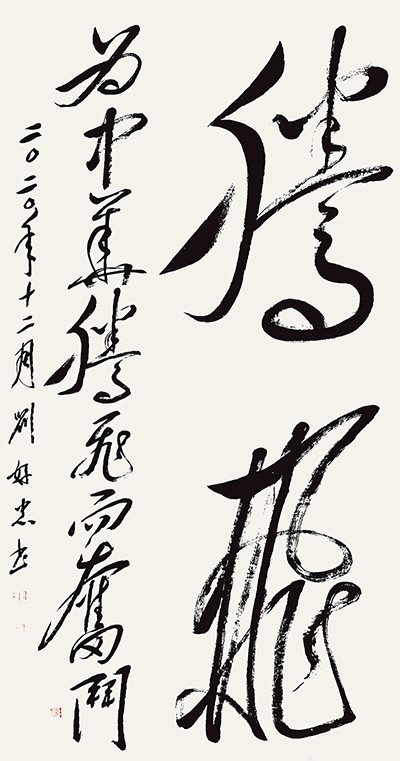 腾飞
为中华腾飞而奋鬥
二〇二〇年十二月刘好忠书